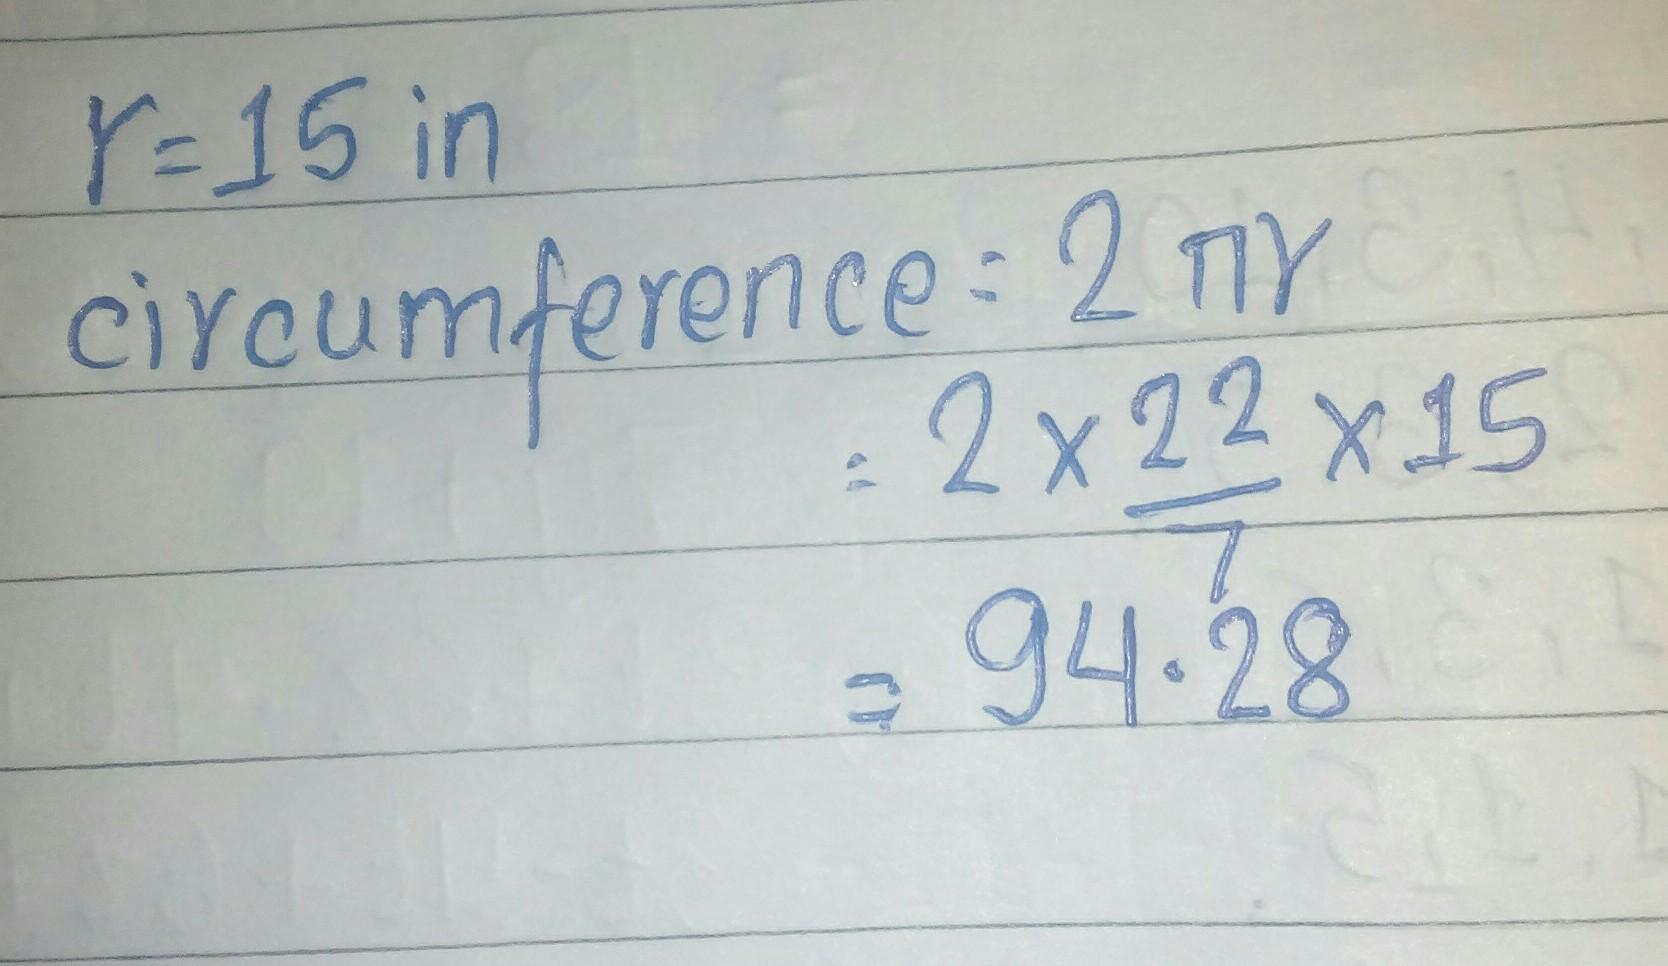 r=15 in
circumference = 2 πr
= 2 × 22/7 × 15
= 94.28